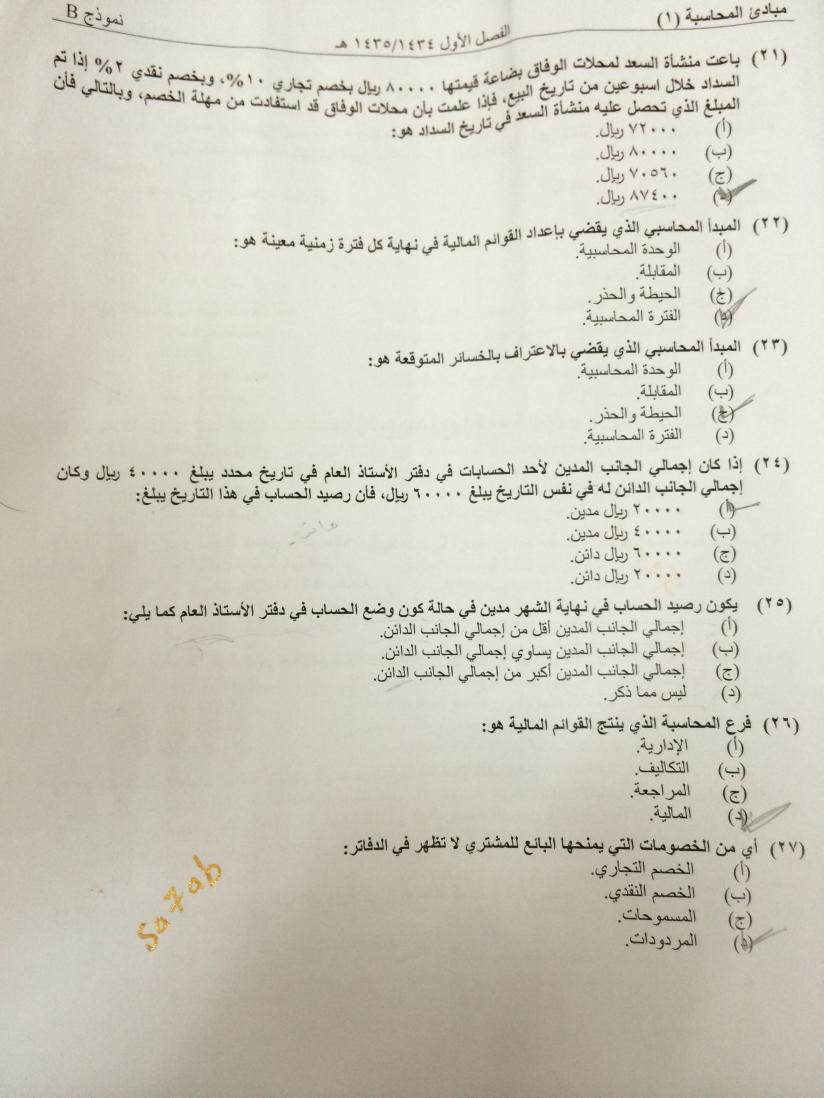 مبادئ المحاسبة (١)
الفصل الأول ١٤٣٥/١٤٣٤ هـ
نموذج B
(٢١) باعت منشأة السعد لمحلات الوفاق بضاعة قيمتها ٨٠٠٠٠ ريال بخصم تجاري ١٠%، وبخصم نقدي ٢% إذا تم
السداد خلال اسبوعين من تاريخ البيع، فإذا علمت بأن محلات الوفاق قد استفادت من مهلة الخصم، وبالتالي فأن
المبلغ الذي تحصل عليه منشأة السعد في تاريخ السداد هو:
(أ) ٧٢٠٠٠ ريال.
(ب) ٨٠٠٠٠ ريال.
(ج) ٧٠٥٦٠ ريال.
(د) ٨٧٤٠٠ ريال.
(٢٢) المبدأ المحاسبي الذي يقضي بإعداد القوائم المالية في نهاية كل فترة زمنية معينة هو:
(أ) الوحدة المحاسبية.
(ب) المقابلة.
(ج) الحيطة والحذر.
(د) الفترة المحاسبية.
(٢٣) المبدأ المحاسبي الذي يقضي بالاعتراف بالخسائر المتوقعة هو:
(أ) الوحدة المحاسبية.
(ب) المقابلة.
(ج) الحيطة والحذر.
(د) الفترة المحاسبية.
(٢٤) إذا كان إجمالي الجانب المدين لأحد الحسابات في دفتر الأستاذ العام في تاريخ محدد يبلغ ٤٠٠٠٠ ريال وكان
إجمالي الجانب الدائن له في نفس التاريخ يبلغ ٦٠٠٠٠ ريال، فأن رصيد الحساب في هذا التاريخ يبلغ:
(أ) ٢٠٠٠٠ ريال مدين.
(ب) ٤٠٠٠٠ ريال مدين.
(ج) ٦٠٠٠٠ ريال دائن.
(د) ٢٠٠٠٠ ريال دائن.
(٢٥) يكون رصيد الحساب في نهاية الشهر مدين في حالة كون وضع الحساب في دفتر الأستاذ العام كما يلي:
(أ) إجمالي الجانب المدين أقل من إجمالي الجانب الدائن.
(ب) إجمالي الجانب المدين يساوي إجمالي الجانب الدائن.
(ج) إجمالي الجانب المدين أكبر من إجمالي الجانب الدائن.
(د) ليس مما ذكر.
(٢٦) فرع المحاسبة الذي ينتج القوائم المالية هو:
(أ) الإدارية.
(ب) التكاليف.
(ج) المراجعة.
(د) المالية.
(٢٧) أي من الخصومات التي يمنحها البائع للمشتري لا تظهر في الدفاتر:
(أ) الخصم التجاري.
(ب) الخصم النقدي.
(ج) المسموحات.
(د) المردودات.
Sa7ab